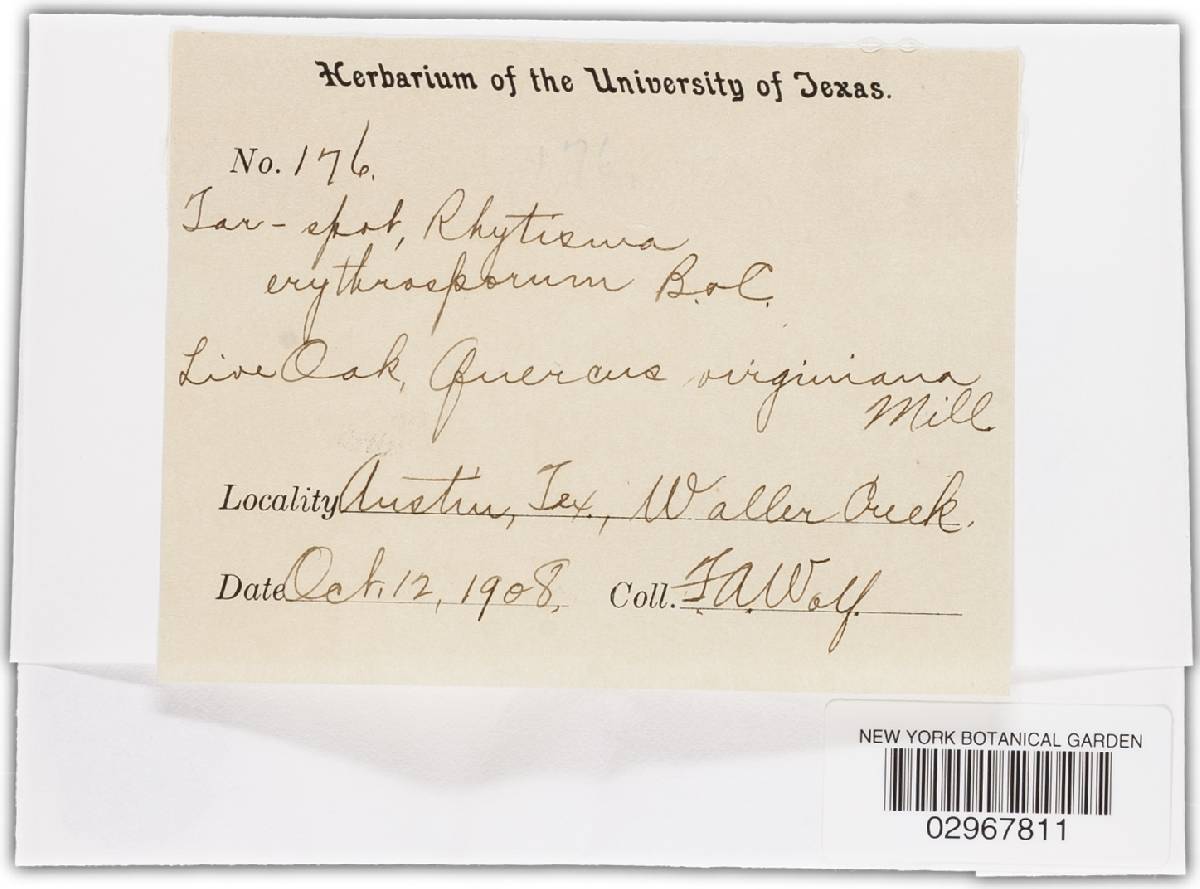 Herbarium of the University of Texas.
No. 176.
Tar-spot, Rhytisma
erythrosporum B.&C.
Live Oak, Quercus virginiana
Mill.
Locality Austin, Tex., Waller Creek.
Date Oct. 12, 1908. Coll. F.A. Wolf.
NEW YORK BOTANICAL GARDEN
02967811